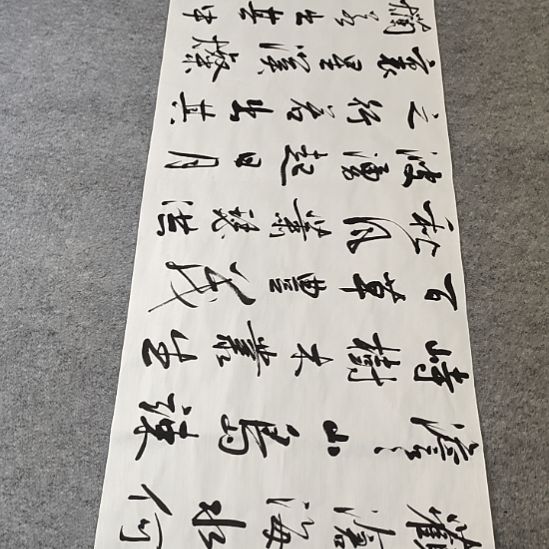 觀滄海水何
澹澹山島竦
峙樹木叢生
百草豐茂
秋風蕭瑟洪
波湧起日月
之行若出其
裏星漢燦
爛若出其中